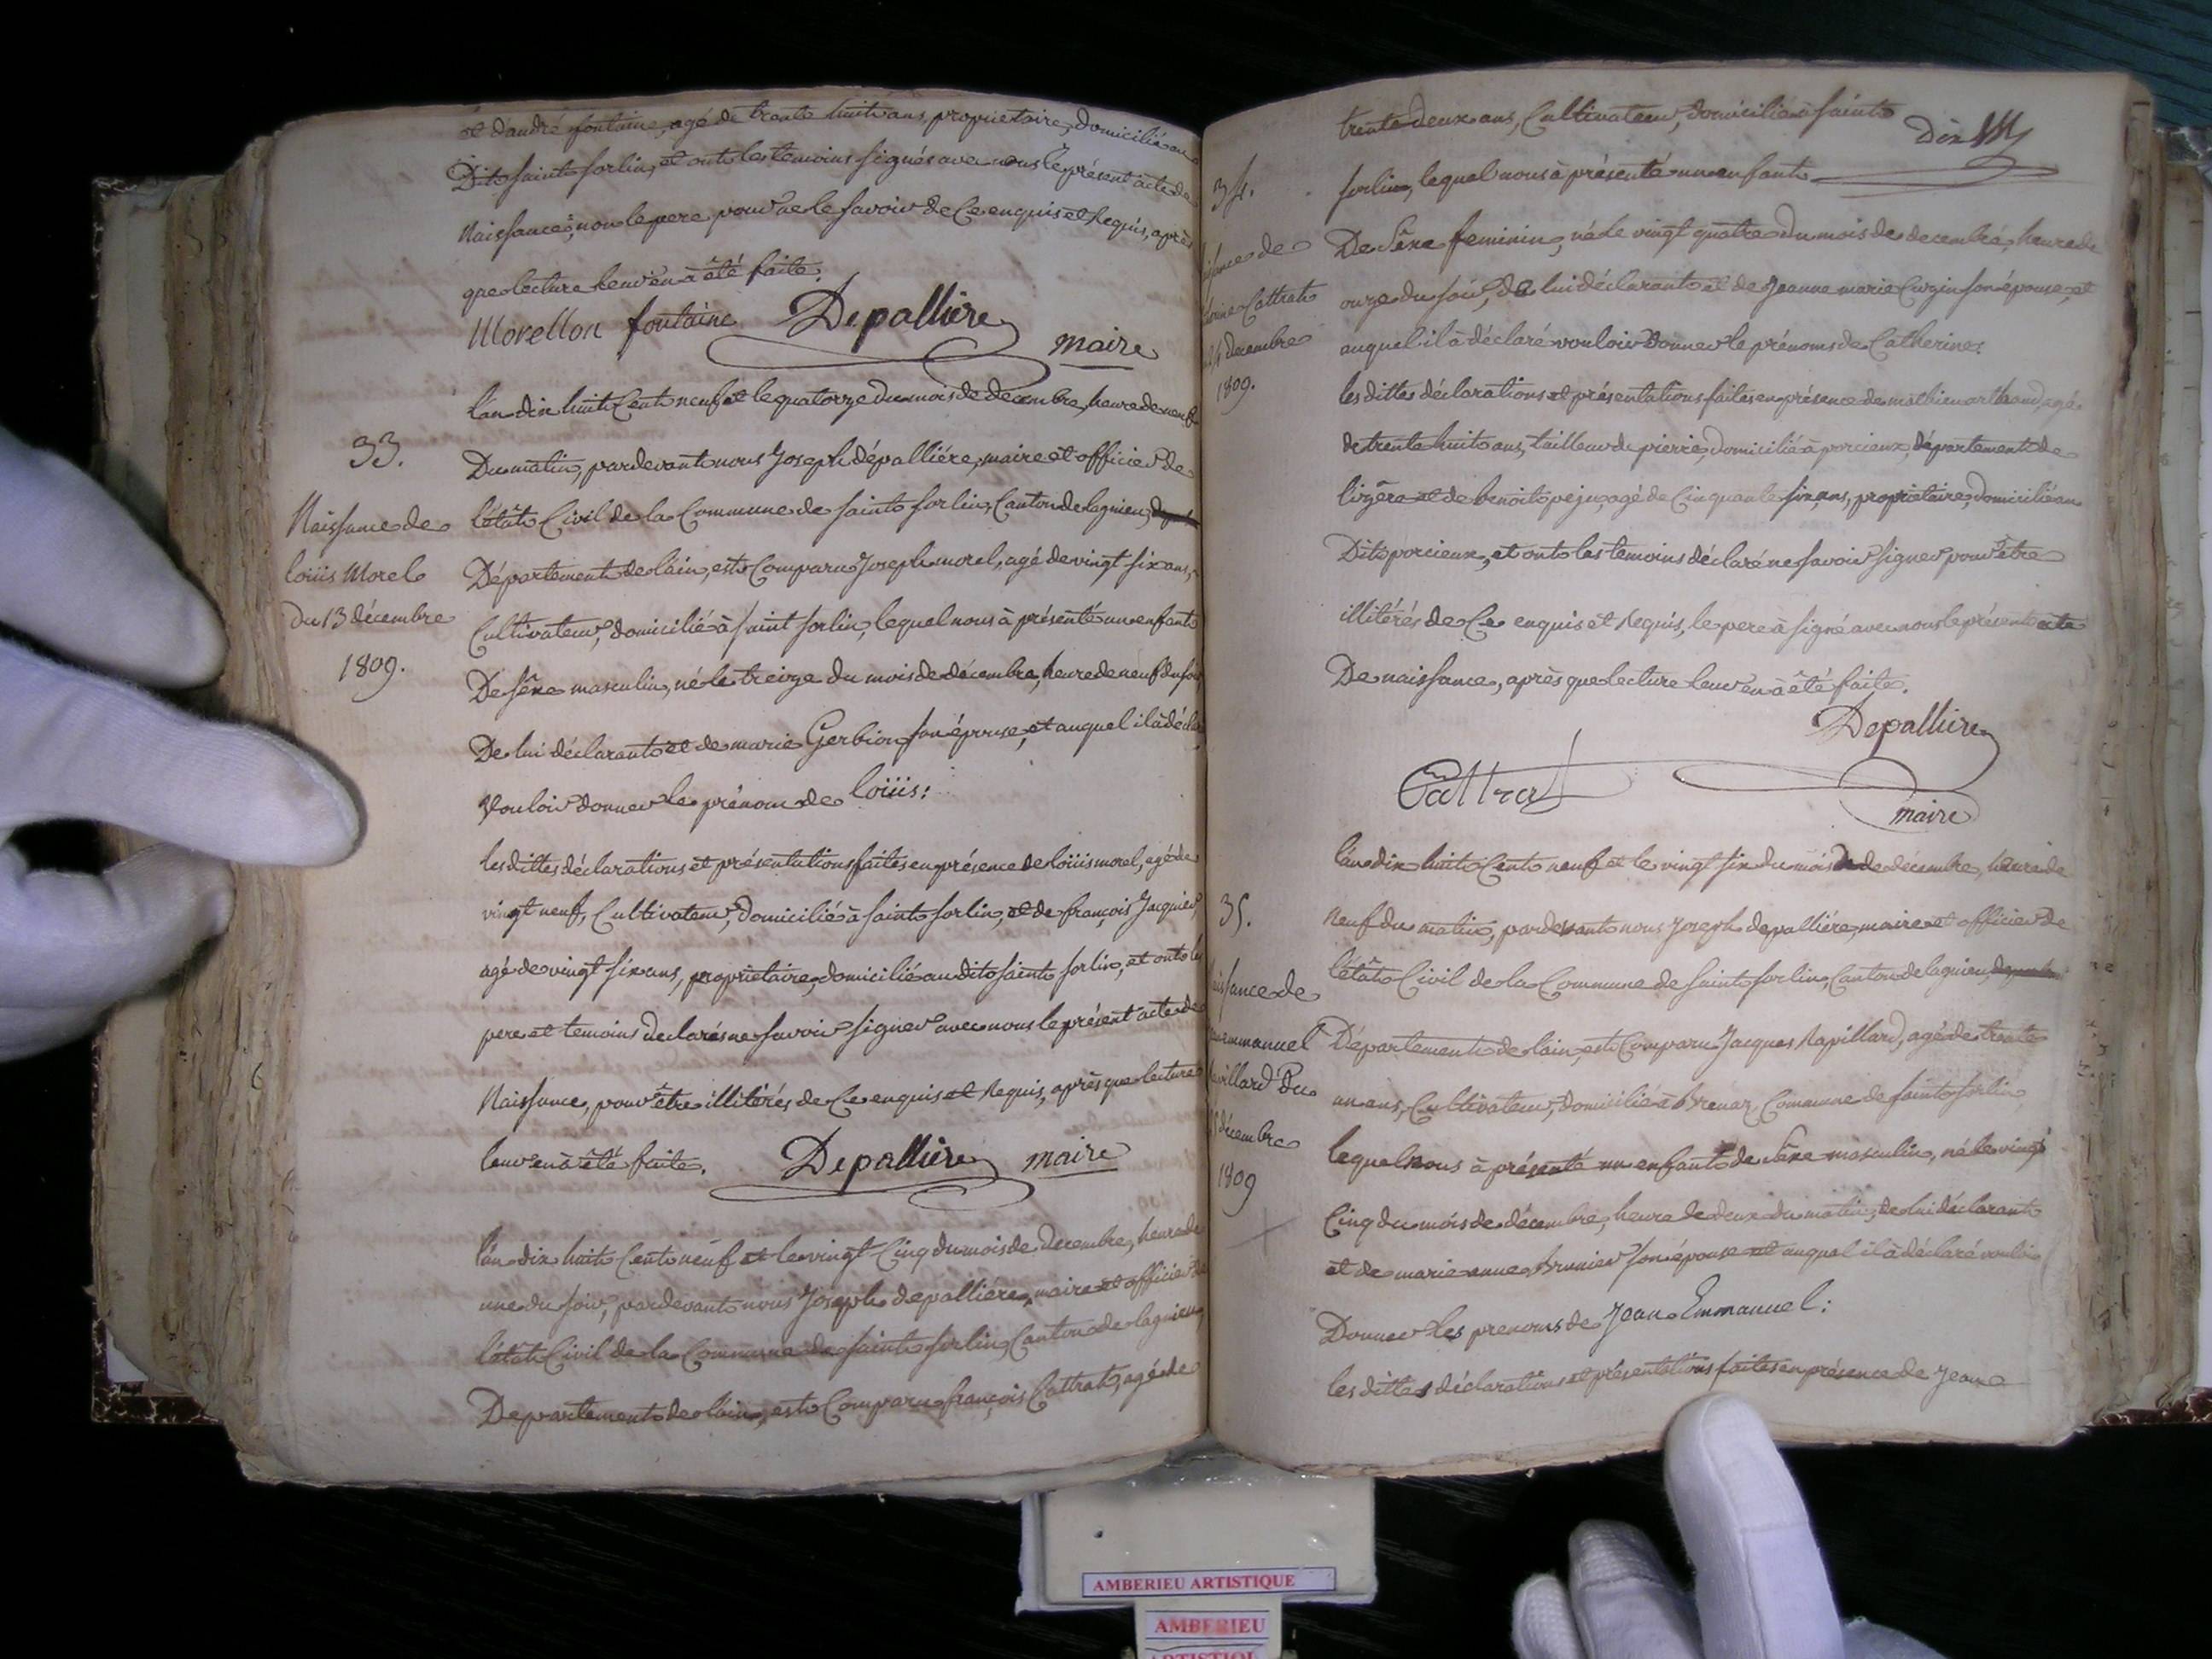 et d'andré fontaine, agé de trente huit ans, proprietaire, domicilié au
Dit saint sorlin, et ont les temoins signés avec nous le présent acte de
Naissance, non le pere pour ne le savoir de ce enquis et Requis, après
que lecture leur en à êté faite.
Morellon fontaine Depalliere
maire
l'an dix huit Cent neuf et le quatorze du mois de decembre, heure de neuf
33.
Du matin, pardevant nous Joseph dépalliére, maire et officier de
Naissance de
l'êtat Civil de la Commune de saint sorlin, Canton de lagnieu,
loüis Morel
Département de lain, est Comparu Joseph morel, agé de vingt six ans,
Du 13 décembre
Cultivateur, domicilié à saint sorlin, lequel nous à présenté un enfant
1809.
De sêxe masculin, né le treize du mois de décembre, heure de neuf du soir
De lui déclarant et de marie Gerbion son épouse, et auquel il à déclaré
vouloir donner le prénom de loüis:
les dittes déclarations et présentations faites en présence de loüis morel, agé de
vingt neuf, Cultivateur, domicilié à saint sorlin, et de françois Jacquier,
agé de vingt six ans, proprietaire, domicilié au dit saint sorlin, et ont les
pere et temoins declarés ne savoir signer avec nous le présent acte de
Naissance, pour être illitérés de Ce enquis et Requis, après que lecture
leur en à êté faite. Depalliere maire
l'an dix huit Cent neuf et le vingt Cinq du mois de decembre, heure de
une du soir, pardevant nous Joseph depalliére, maire et officier de
l'êtat Civil de la Commune de saint sorlin, Canton de lagnieu,
Departement de lain, est Comparu françois Cattrat, agé de
trente deux ans, Cultivateur, domicilié à saint
Dix
34.
sorlin, lequel nous à présenté un enfant
De sêxe feminin, né le vingt quatre du mois de decembre, heure de
onze du soir, de lui déclarant et de Jeanne marie Cuzin son épouse, et
Cattrat
auquel il à déclaré vouloir donner le prénoms de Catherine:
24 decembre
1809.
les dittes déclarations et présentations faites en présence de mathieu orthand, agé
de trente huit ans, tailleur de pierre, domicilié à porcieux, département de
lizêre et de benoit peju, agé de Cinquante six ans, proprietaire, domicilié au
Dit porcieux, et ont les temoins déclaré ne savoir signer pour être
illitérés de Ce enquis et Requis, le pere à signé avec nous le présent acte
De naissance, après que lecture leur en à êté faite.
Depalliere
Cattrat
maire
l'an dix huit Cent neuf et le vingt six du mois de décembre, heure de
35.
Neuf du matin, pardevant nous Joseph depalliére, maire et officier de
l'êtat Civil de la Commune de saint sorlin, Canton de lagnieu,
issance de
emmanuel
Département de lain, est Comparu Jacques Rapillard, agé de trente
villard Du
un ans, Cultivateur, domicilié à Brenaz, Commune de saint sorlin
décembre
lequel nous à présenté un enfant de sêxe masculin, né le vingt
1809
Cinq du mois de décembre, heure de deux du matin, de lui déclarant
et de marie anne Brunier son épouse et auquel il à déclaré vouloir
Donner les prenoms de Jean Emmanuel:
les dittes déclarations et présentations faites en présence de Jean
AMBERIEU ARTISTIQUE
AMBERIEU